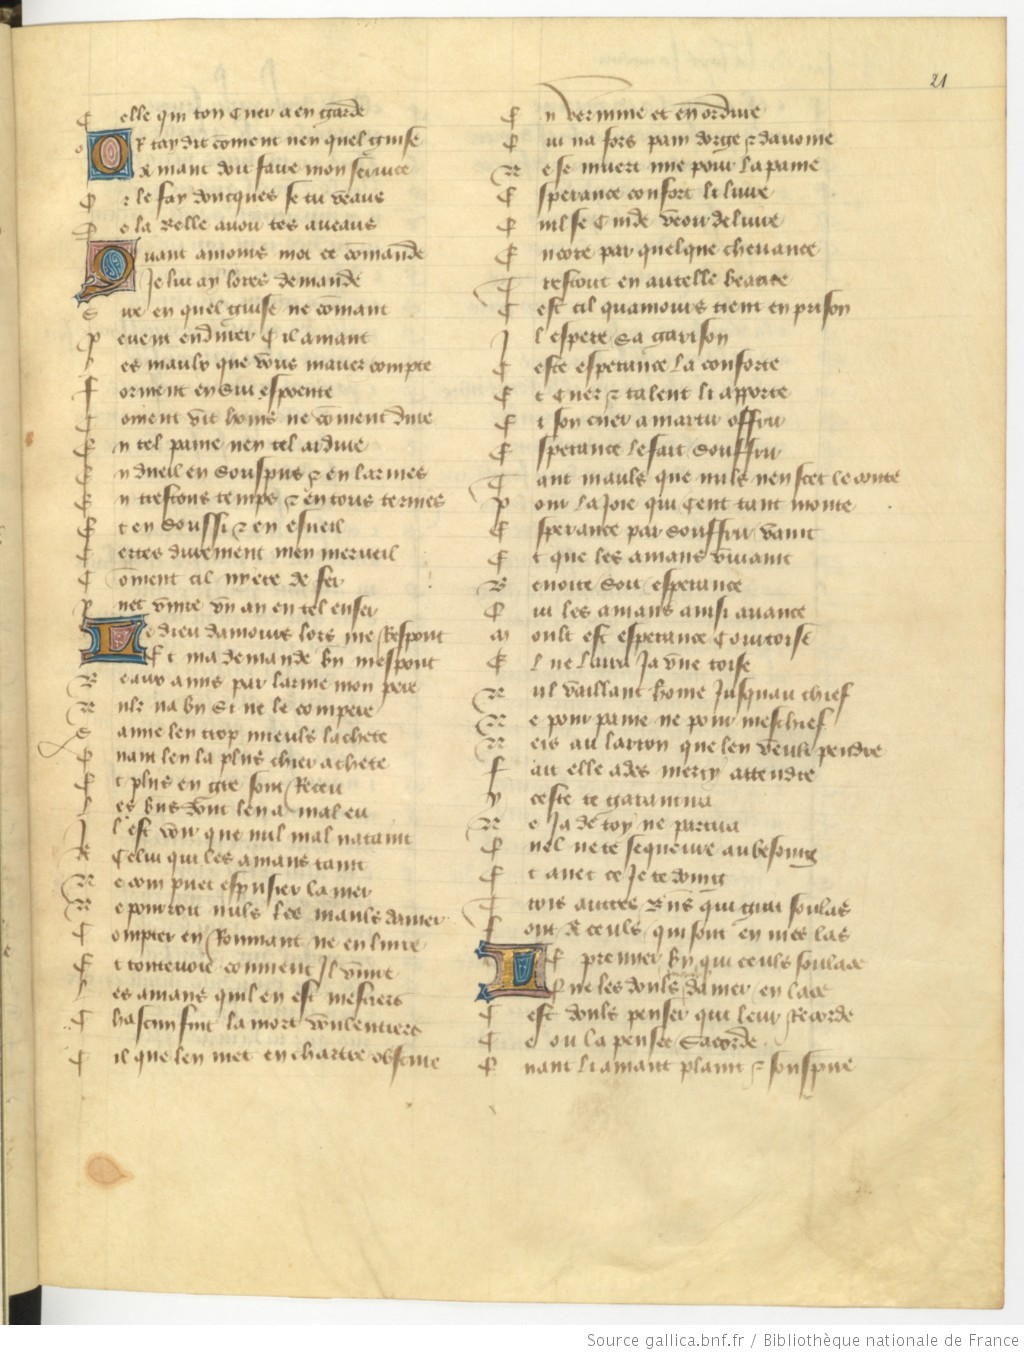 21
C elle qui ton cuer a en garde
O R tay dit coment nen quel guise
A mant doit faire mon service
O r le fay doncques se tu veaus
D e la belle avoir tes aveaus
Q uant amours mot ce comande
Je luy ay lores demande
S ire en quel guise ne coment
P euent endurer cil amant
L es maulx que vous mavez compte
F orment en sui espoente
C oment vit homs ne coment dure
E n tel paine nen tel ardure
E n dueil en souspirs & en larmes
E n trestous temps & en tous termes
E t en soussi & en esueil
C ertes durement men merueil
C oment cil nyere de fer
P uet vivre un an en tel enfer
L e dieu damours lors me respont
E t ma demande bn mespont
B eaux amis par larme mon pere
N ulz na bn si ne le compere
S aime len trop mieuls lachete
Q uant len la plus chier achete
E t plus en gre sont receu
L es bns dont len a mal eu
I l est voir que nul mal nataint
A celui qui les amans taint
N e com puet espuisier la mer
N e pourroit nuls les mauls damer
C ompter en rommant ne en livre
E t toutevoie conuient il vivre
L es amans quil en est mestiers
C hascun fuit la mort voulentiers
C il que len met en chartre obscure
E n vermine et en ordure
Q ui na fors pain dorge & davoine
N e se muert mie pour la paine
E sperance confort li livre
Q uil se cuide veoir delivre
E ncore par quelque chevance
T restout en autelle beance
C est cil quamours tient en prison
I l espere sa garison
C este esperance la conforte
E t cuer & talent li apporte
E t son cuer a martir offrir
E sperance le fait souffrir
T ant mauls que nuls nen scet le conte
P our la joie qui cent tant monte
E sperance par souffrir vaint
E t que les amans vivaint
B enoite soit esperance
Q ui les amans ainsi avance
M oult est esperance courtoise
E l ne laira ja une toise
N ul vaillant home jusquau chief
N e pour paine ne pour meschief
N eis au larron que len veult pendre
F ait elle ades mercy attendre
Y ceste te garantira
N e ja de toy ne partira
Q uel ne te sequeure au besoing
E t avec ce je te doing
T rois autres bns qui grans soulas
F ont a ceuls qui sont en mes las
L E premier bn qui ceuls soulace
Q ue les douls damer en lace
C est douls penser qui leur recorde
C e ou la pensee sacorde
Q uant li amant plaint & souspire
Source gallica.bnf.fr / Bibliothèque nationale de France